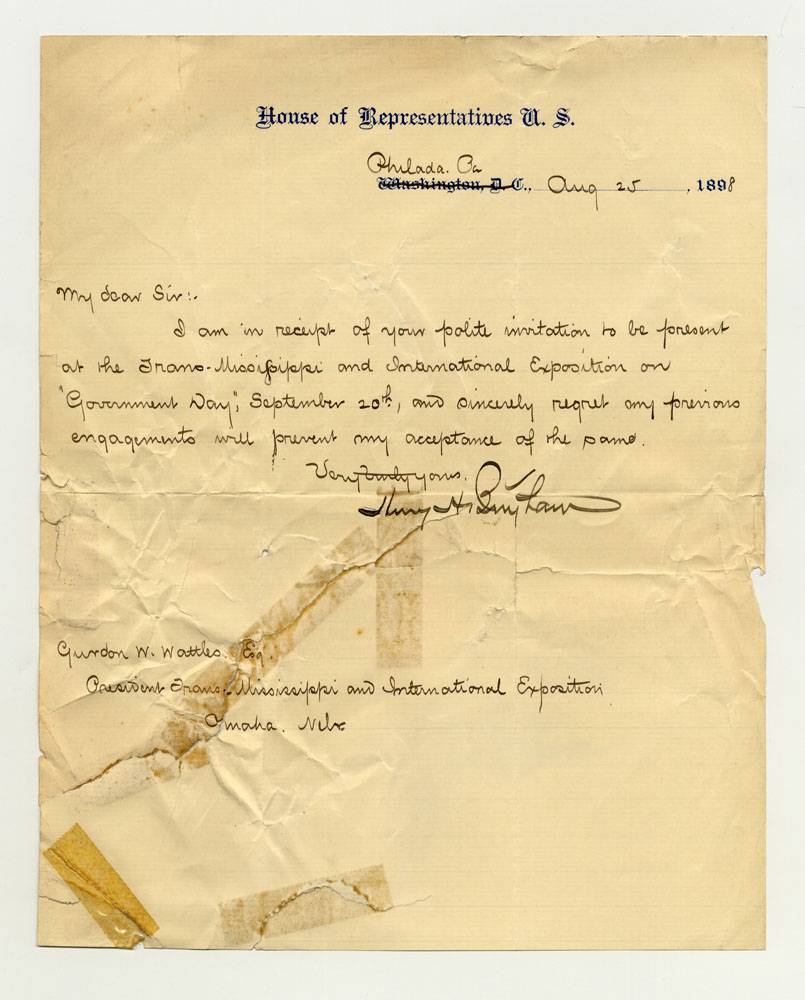 House of Representatives U. S.
Philada. Pa
Washington, D. C., Aug 25, 1898
My dear Sir:-
I am in receipt of your polite invitation to be present
at the Trans-Mississippi and International Exposition on
"Government Day", September 20th, and sincerely regret my previous
engagements will prevent my acceptance of the same.
Very truly yours,
Henry H. Bingham
Gurdon W. Wattles. Esq.
President Trans-Mississippi and International Exposition
Omaha. Nebr